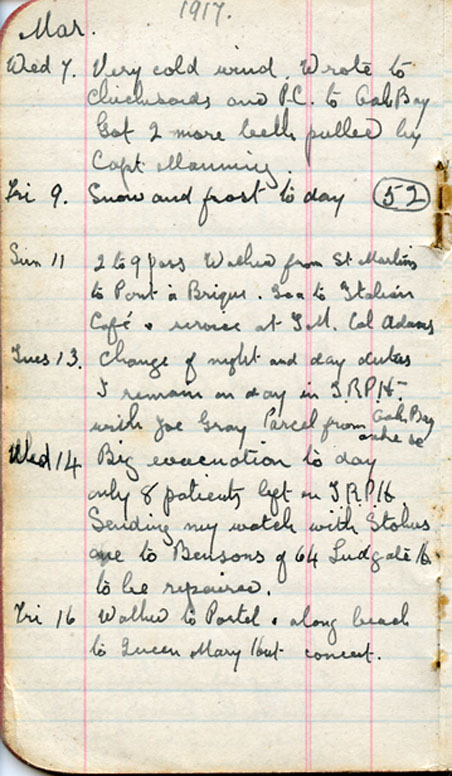 1917.
Mar.
Wed 7. Very cold wind. Wrote to
and P.C. to Oak Bay
Got 2 more teeth pulled by
Capt Manning.
Fri 9. Snow and frost to day 52
Sun 11 2 to 9 pass Walked from St Martins
to Pont à Brique. Tea to Italian
Café & service at Col Adams
Tues 13. Change of night and day duties
I remain on day in
with Joe Gray Parcel from Oak Bay
cake &c
Wed 14 Big evacuation to day
only 8 patients left in
Sending my watch with Stokes
one to Bensons of 64 Ludgate H.
to be repaired.
Fri 16 Walked to Portel & along beach
to Queen Mary Hut concert.